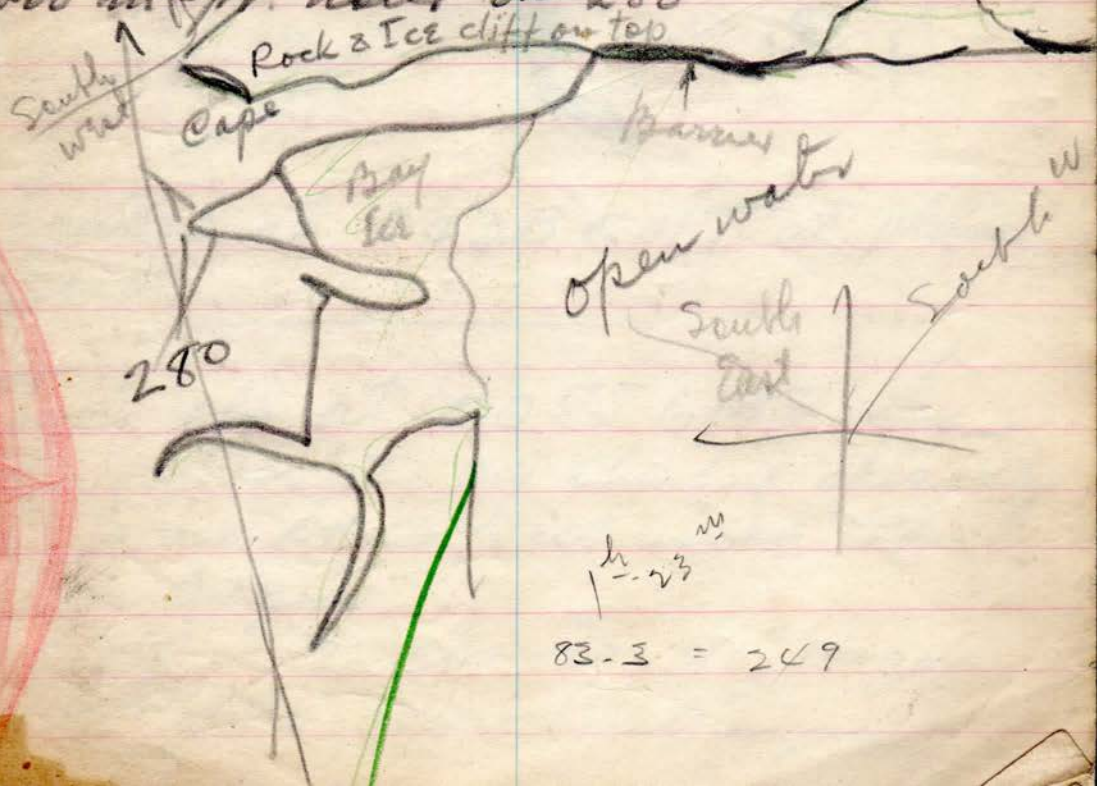 200
Rock & Ice cliff on top
South
West
Cape
Barrier
Bay
Ice
open water
South W
South
East
280
1h-23m
83-3 = 249